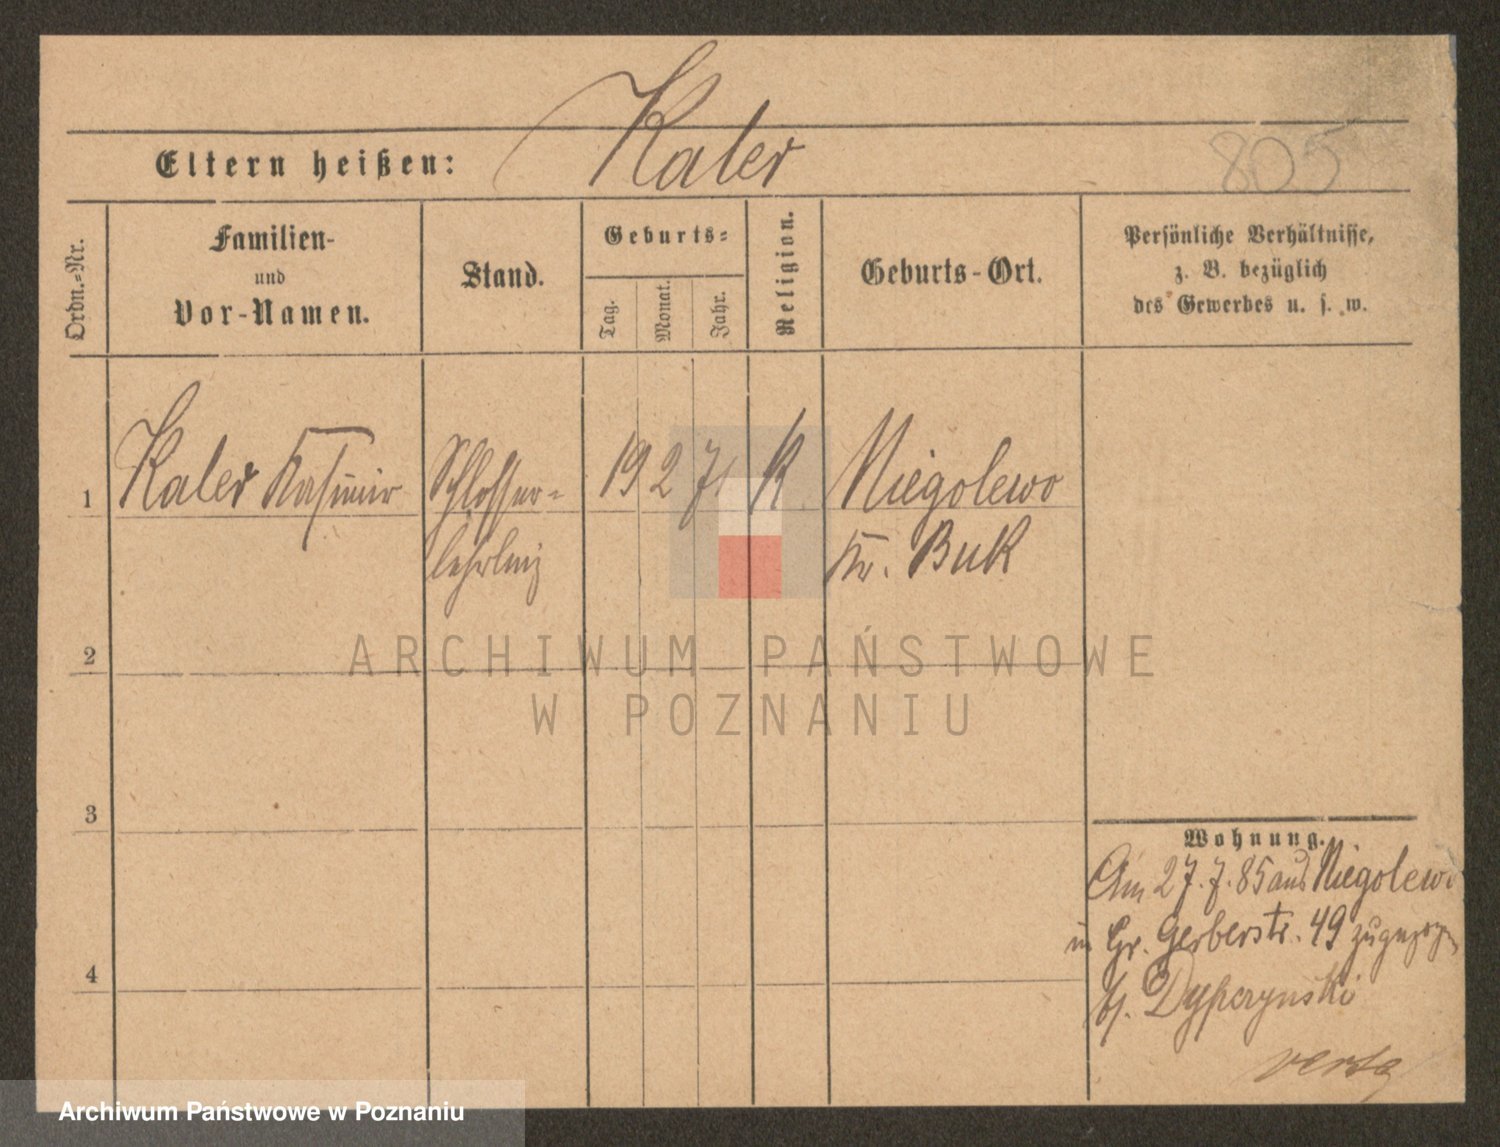 Kaler
805
Eltern heißen:
Ordn.-Nr.
Familien-
und
Vor-Namen.
Stand.
Geburts-
Tag.
Monat.
Jahr.
Religion.
Geburts-Ort.
Persönliche Verhältnisse,
z. B. bezüglich
des Gewerbes u. s. w.
1
Kaler Kasimir
Schlosser-
lehrling
19 2 71
K.
Niegolewo
Kr. Buk
2
3
4
Wohnung.
Am 27.7.85 aus Niegolewo
in Gr. Gerberstr. 49 zugezogen
b.
verte
ARCHIWUM PAŃSTWOWE
W POZNANIU
Archiwum Państwowe w Poznaniu